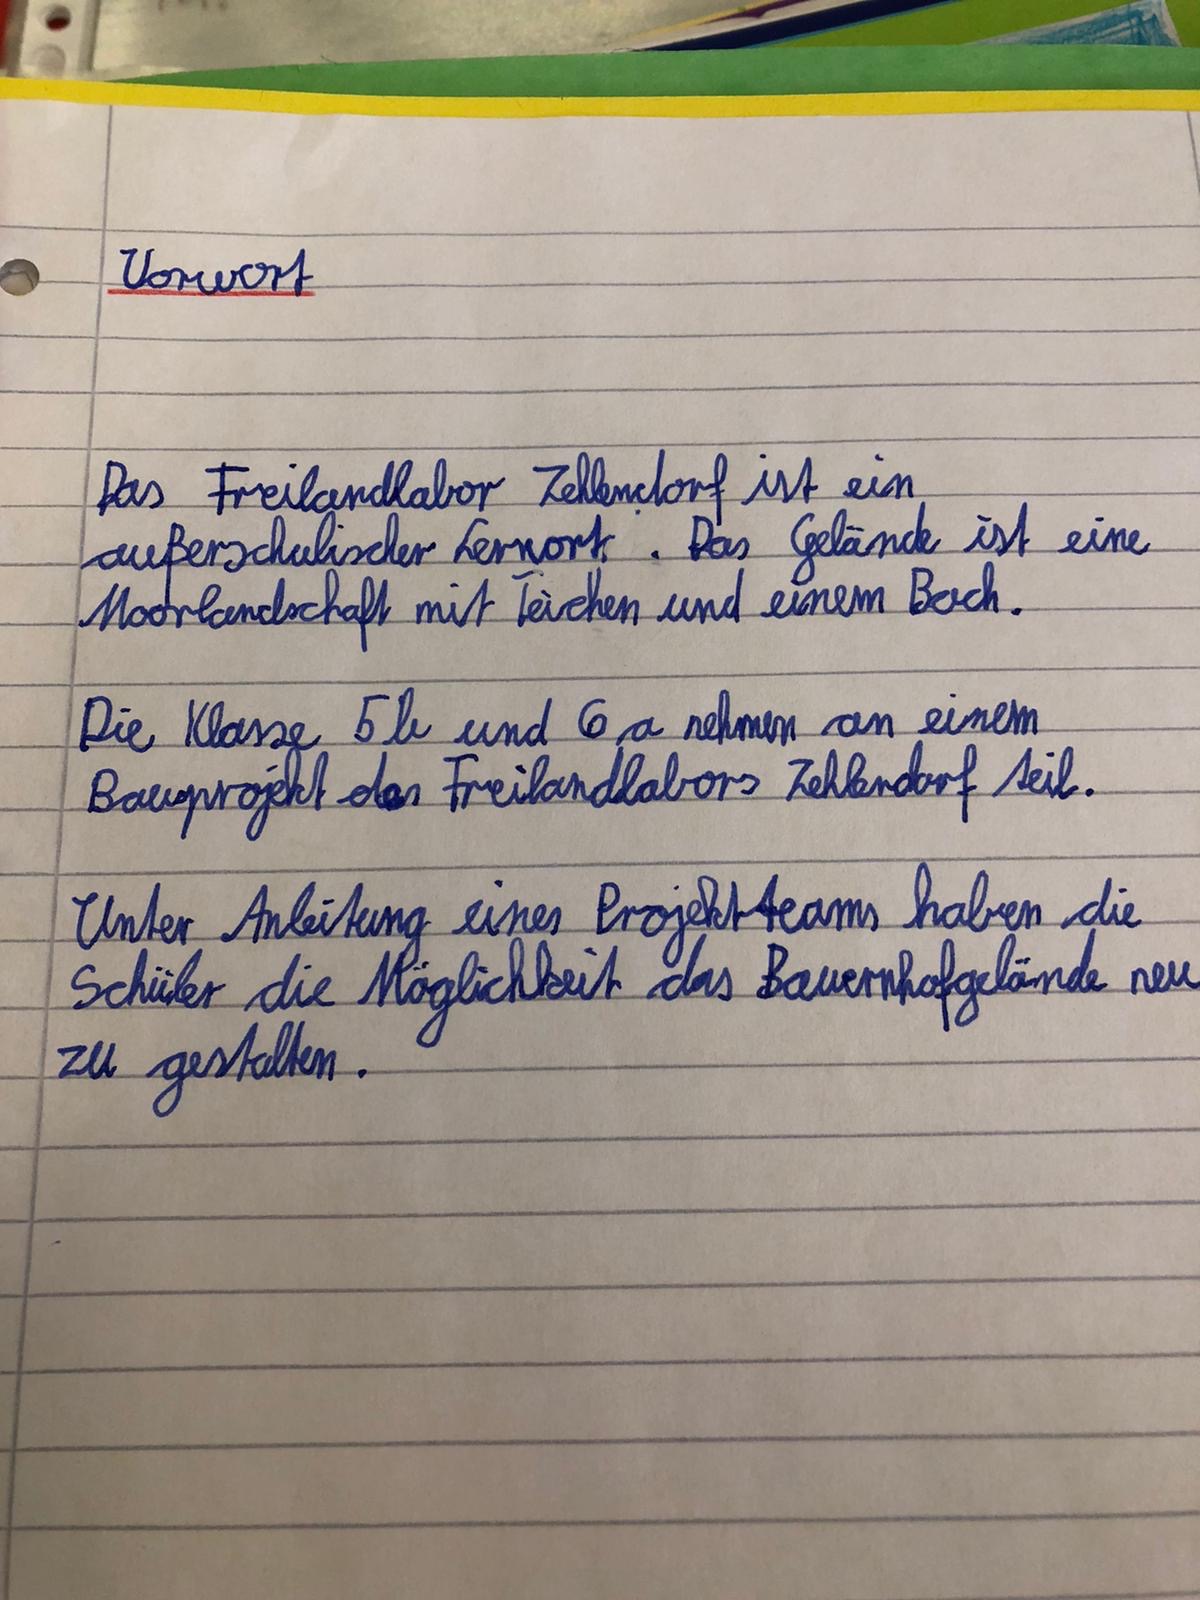 Vorwort
Das Freilandlabor Zehlendorf ist ein
außerschulischer Lernort. Das Gelände ist eine
Moorlandschaft mit Teichen und einem Bach.
Die Klasse 5b und 6a nehmen an einem
Bauprojekt des Freilandlabors Zehlendorf teil.
Unter Anleitung eines Projektteams haben die
Schüler die Möglichkeit das Bauernhofgelände neu
zu gestalten.